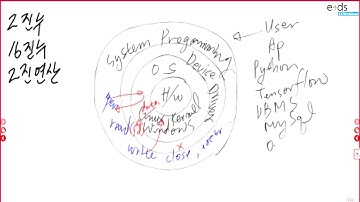 2진수
16진수
2진연산
e4ds
System Programming
Device Driver
O S
H/W
Linux kernel
Windows
open
data
read
write close,
User
Ap
Python
Tensorflow
DBMS
MySql
O